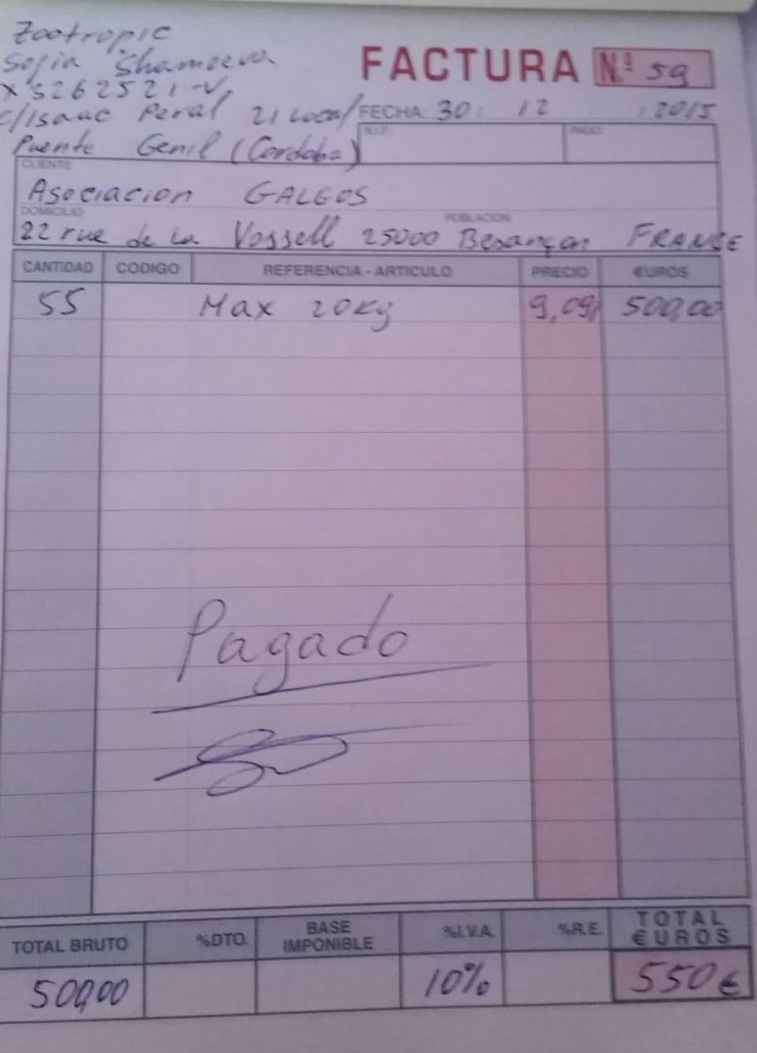 Zootropic
Sofia Shamoeva
X3262521-V
C/Isaac Peral 21 Local
Puente Genil (Cordoba)
FACTURA Nº 59
FECHA: 30 12 2015
N.I.F. PAGO
CLIENTE
Asociacion GALGOS
DOMICILIO POBLACION
22 rue de la Vossell 25000 Besançon FRANSE
CANTIDAD CODIGO REFERENCIA - ARTICULO PRECIO €UROS
55 Max 20Kg 9,09 500,00
Pagado
TOTAL BRUTO %DTO. BASE IMPONIBLE %I.V.A. %R.E. TOTAL €UROS
500,00 10% 550€